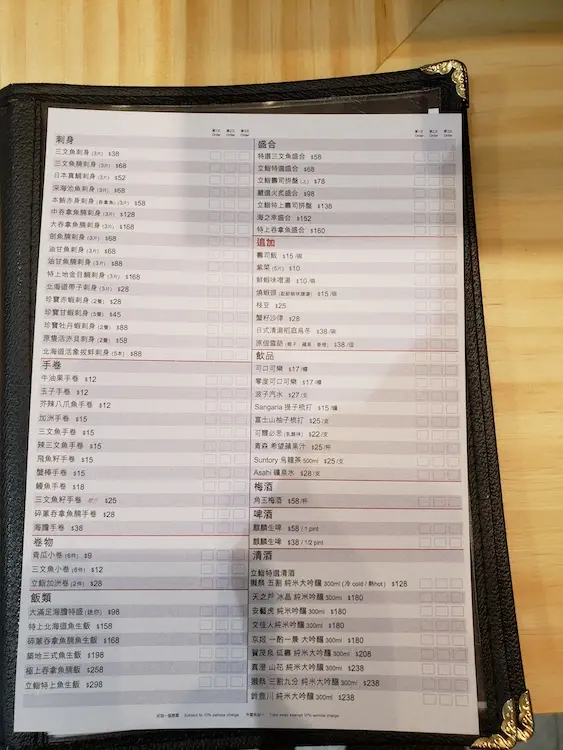 刺身
三文魚刺身 (3片) $38
三文魚腩刺身 (3片) $68
日本真鯛刺身 (3片) $52
深海池魚刺身 (3片) $68
本鮪赤身刺身 (吞拿魚) (3片) $58
中吞拿魚腩刺身 (3片) $128
大吞拿魚腩刺身 (3片) $168
劍魚腩刺身 (3片) $68
油甘魚刺身 (3片) $68
油甘魚腩刺身 (3片) $88
特上地金目鯛刺身 (3片) $168
北海道帶子刺身 (3片) $28
珍寶赤蝦刺身 (2隻) $28
珍寶甘蝦刺身 (5隻) $45
珍寶牡丹蝦刺身 (2隻) $88
原隻活赤貝刺身 (2隻) $58
北海道活象拔蚌刺身 (5片) $88
手卷
牛油果手卷 $12
玉子手卷 $12
芥辣八爪魚手卷 $12
加洲手卷 $15
三文魚手卷 $15
辣三文魚手卷 $15
飛魚籽手卷 $15
蟹棒手卷 $15
鰻魚手卷 $18
三文魚籽手卷 $25
碎蔥吞拿魚腩手卷 $28
海膽手卷 $38
卷物
青瓜小卷 (6件) $9
三文魚小卷 (6件) $12
立鮨加洲卷 (2件) $28
飯類
大滿足海膽特盛 (迷你) $98
特上北海道魚生飯 $158
碎蔥吞拿魚腩魚生飯 $168
築地三式魚生飯 $198
極上吞拿魚腩飯 $258
立鮨特上魚生飯 $298
第1次 第2次 第3次
Order Order Order
盛合
特選三文魚盛合 $58
立鮨特選盛合 $68
立鮨壽司拼盤 (上) $78
嚴選火炙盛合 $98
立鮨特上壽司拼盤 $138
海之幸盛合 $152
特上吞拿魚盛合 $160
追加
壽司飯 $15 /碗
紫菜 (5片) $10
鮮蝦味噌湯 $10 /碗
燒蝦頭 $15 /碗
枝豆 $25
蟹籽沙律 $28
日式清湯稻庭烏冬 $38 /碗
原個雪葩 $38 /個
飲品
可口可樂 $17 /罐
零度可口可樂 $17 /罐
波子汽水 $27 /支
Sangaria 提子梳打 $15 /罐
富士山柚子梳打 $25 /支
可爾必思 (乳酸味) $22 /支
青森 希望蘋果汁 $25 /杯
Suntory 烏龍茶 500ml $25 /支
Asahi 礦泉水 $28 /支
梅酒
角玉梅酒 $58 /杯
啤酒
麒麟生啤 $58 / 1 pint
麒麟生啤 $38 / 1/2 pint
清酒
立鮨特選清酒
獺祭 五割 純米大吟釀 300ml (冷 cold / 熱hot) $128
天之戶 冰晶 純米大吟釀 300ml $180
安藝虎 純米大吟釀 300ml $180
文佳人純米大吟釀 300ml $180
京姬 一酌一景 大吟釀 300ml $180
賀茂泉 延壽 純米大吟釀 300ml $208
真澄 山花 純米大吟釀 300ml $238
獺祭 三割九分 純米大吟釀 300ml $238
鈴鹿川 純米大吟釀 300ml $238
另加一服務費 Subject to 10% service charge
Take away exempt 10% service charge